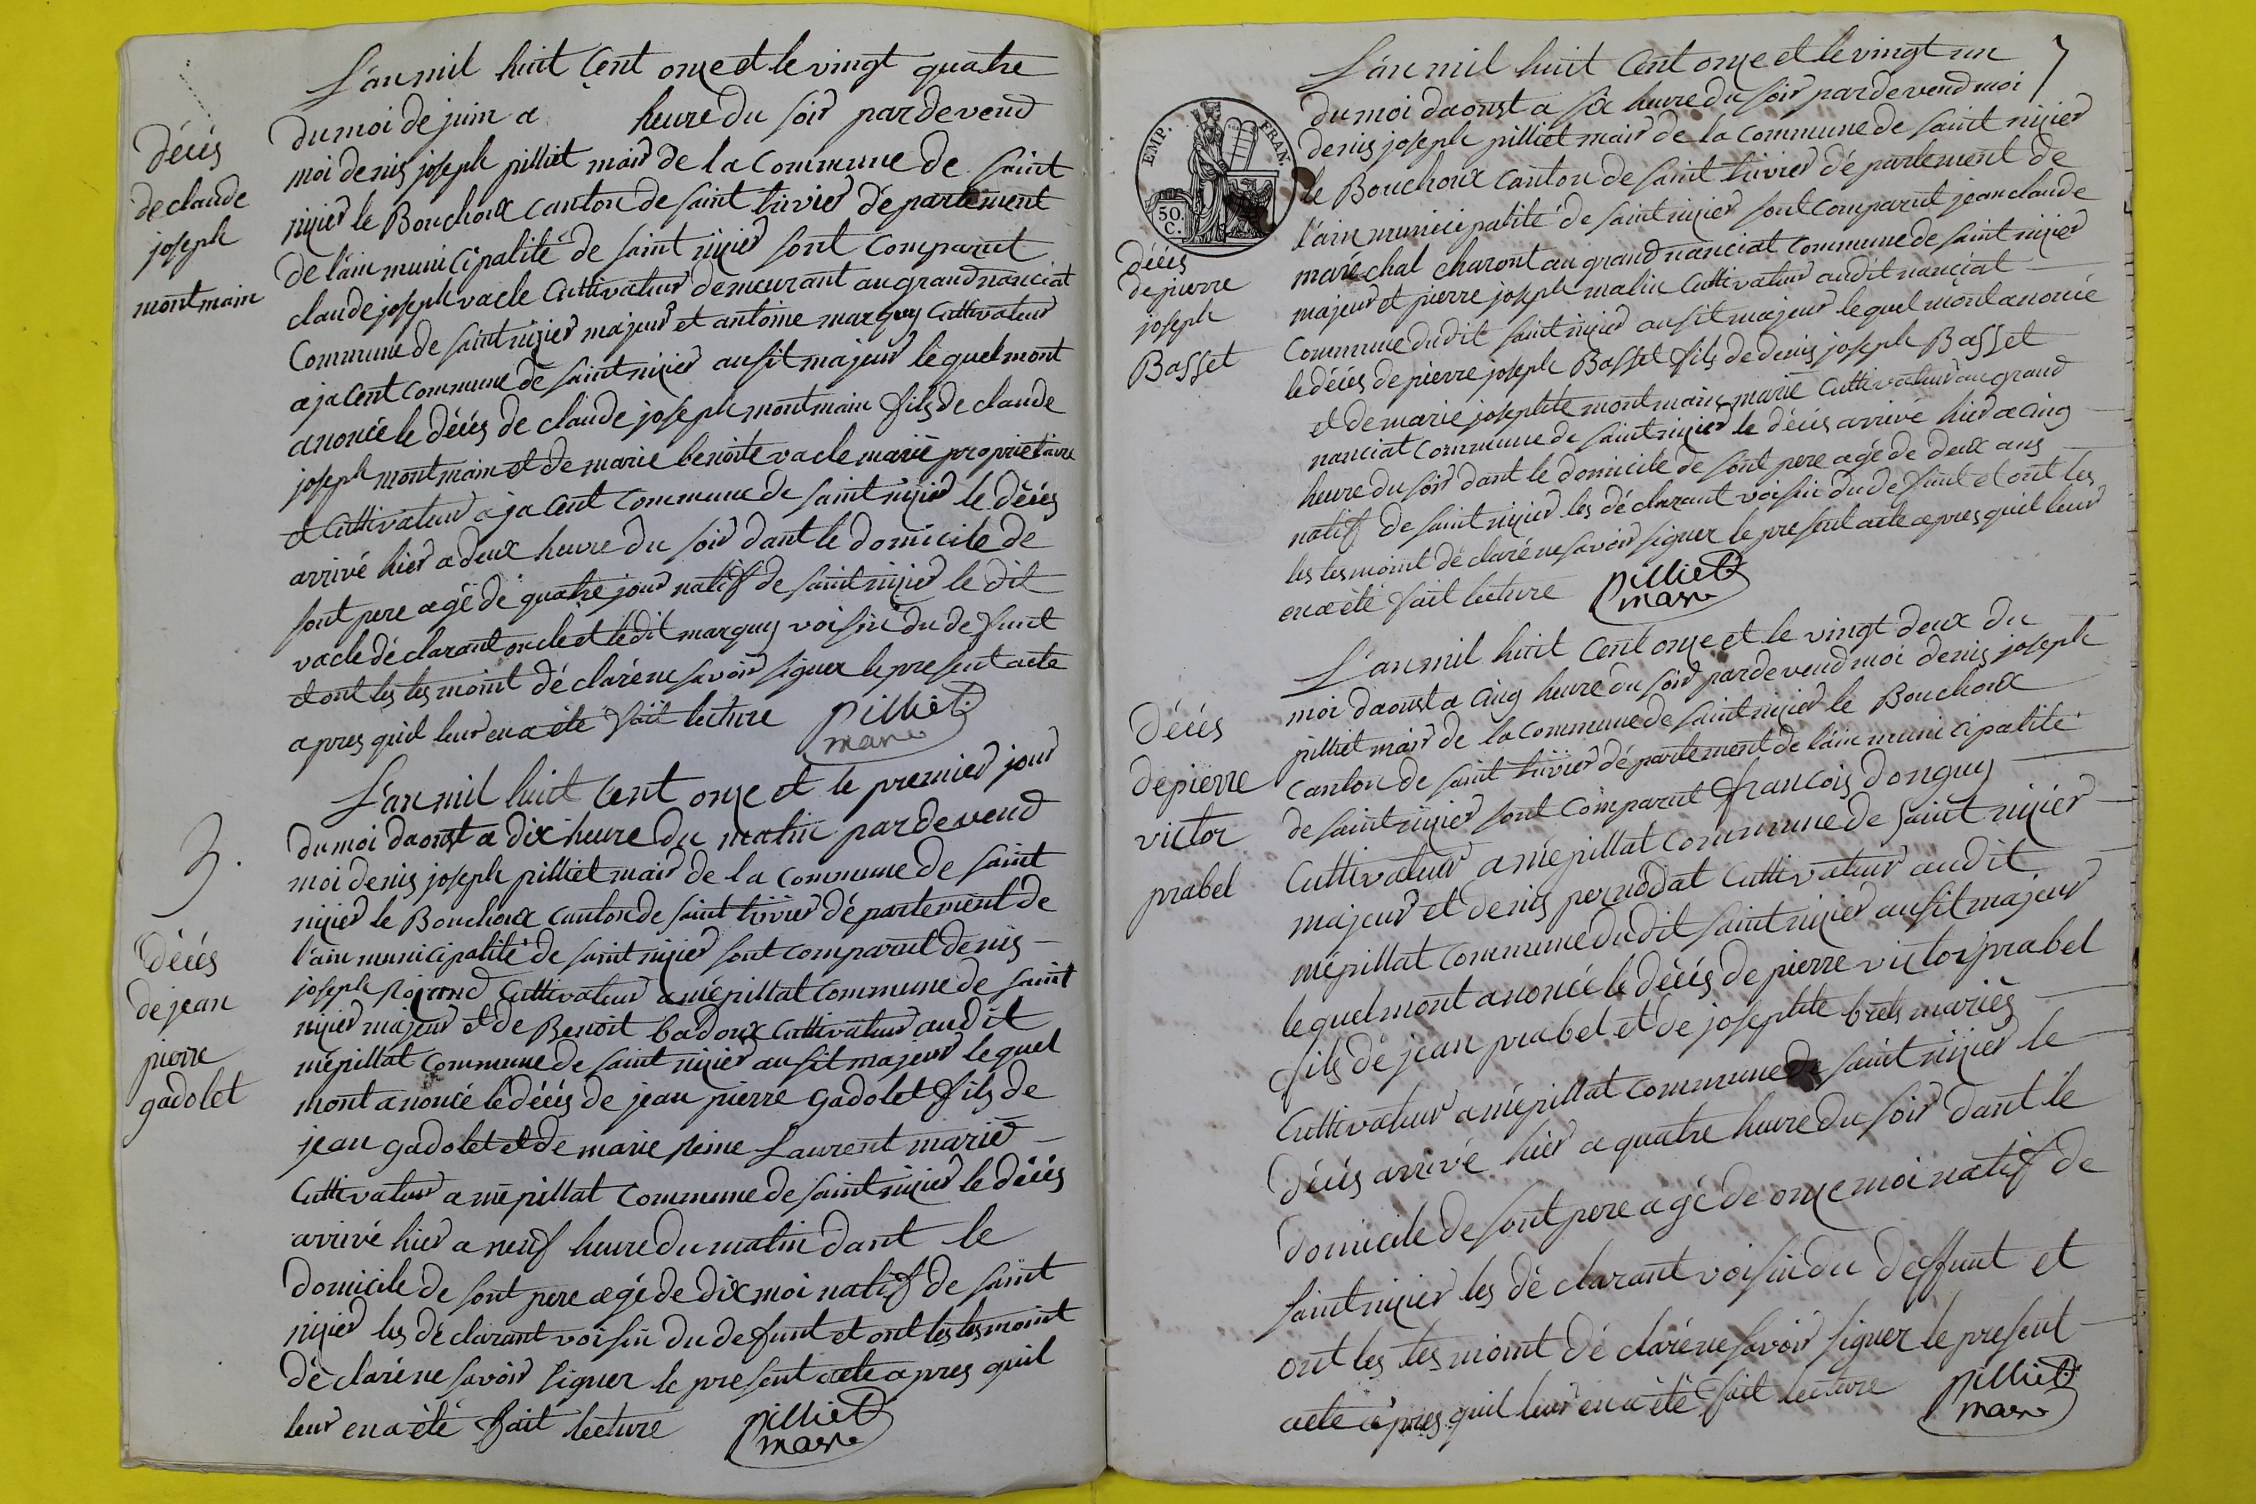 L'an mil huit Cent onze et le vingt quatre
du moi de juin a heure du soir pardevend
moi denis joseph pilliet mair de la Commune de saint
nizier le Bouchoux canton de saint trivier département
de l'ain municipalité de saint nizier sont comparut
claude joseph vacle Cultivateur demeurant au grand nanciat
Commune de saint nizier majeur et antoine marguy Cultivateur
a jacent commune de saint nizier ausit majeur lequel mont
anoncé le décés de claude joseph montmain fils de claude
joseph montmain et de marie benoite vacle marié proprietaire
et Cultivateur a jacent commune de saint nizier le décés
arrivé hier a deux heure du soir dant le domicile de
sont pere agé de quatre jour natif de saint nizier le dit
vacle déclarant oncle et ledit marguy voisin du defunt
et ont les tesmoint déclaré ne savoir signer le present acte
apres quil leur en a été fait lecture pilliet
maire
décés
de claude
joseph
montmain
L'an mil huit Cent onze et le premier jour
du moi daoust a dix heure du matin pardevend
moi denis joseph pilliet mair de la commune de saint
nizier le Bouchoux canton de saint trivier département de
l'ain municipalité de saint nizier sont comparut denis
joseph cultivateur a mépillat commune de saint
nizier majeur et de Benoit badoux Cultivateur audit
mépillat commune de saint nizier ausit majeur lequel
mont anoncé le décés de jean pierre gadolet fils de
jean gadolet et de marie reine Laurent marié
Cultivateur a mépillat commune de saint nizier le décés
arrivé hier a neuf heure du matin dant le
domicile de sont pere agé de dix moi natif de saint
nizier les déclarant voisin du defunt et ont les tesmoint
déclaré ne savoir signer le present acte apres quil
leur en a été fait lecture pilliet
maire
3.
décés
de jean
pierre
gadolet
7
L'an mil huit Cent onze et le vingt un
du moi daoust a six heure du soir pardevend moi
denis joseph pilliet mair de la commune de saint nizier
le Bouchoux canton de saint trivier département de
l'ain municipalité de saint nizier sont comparut jean claude
maréchal charont au grand nanciat commune de saint nizier
majeur et pierre joseph malin Cultivateur audit nanciat
Commune dudit saint nizier ausit majeur lequel mont anoncé
le décés de pierre joseph Basset fils de denis joseph Basset
et de marie josephte montmain marié Cultivateur au grand
nanciat commune de saint nizier le décés arrivé hier a cinq
heure du soir dant le domicile de sont pere agé de deux ans
natif de saint nizier les déclarant voisin du defunt et ont les
les tesmoint déclaré ne savoir signer le present acte apres quil leur
en a été fait lecture pilliet
maire
EMP. FRAN.
50.
C.
décés
de pierre
joseph
Basset
L'an mil huit Cent onze et le vingt deux du
moi daoust a cinq heure du soir pardevend moi denis joseph
pilliet mair de la commune de saint nizier le Bouchoux
canton de saint trivier département de l'ain municipalité
de saint nizier sont comparut francois donguy
Cultivateur a mépillat commune de saint nizier
majeur et denis pernodat cultivateur audit
mépillat commune dudit saint nizier ausit majeur
lequel mont anoncé le décés de pierre victor prabel
fils de jean prabel et de josephte brets mariés
Cultivateur a mépillat commune de saint nizier le
décés arrivé hier a quatre heure du soir dant le
domicile de sont pere agé de onze moi natif de
saint nizier les déclarant voisin du deffunt et
ont les tesmoint déclaré ne savoir signer le present
acte apres quil leur en a été fait lecture pilliet
maire
décés
de pierre
victor
prabel